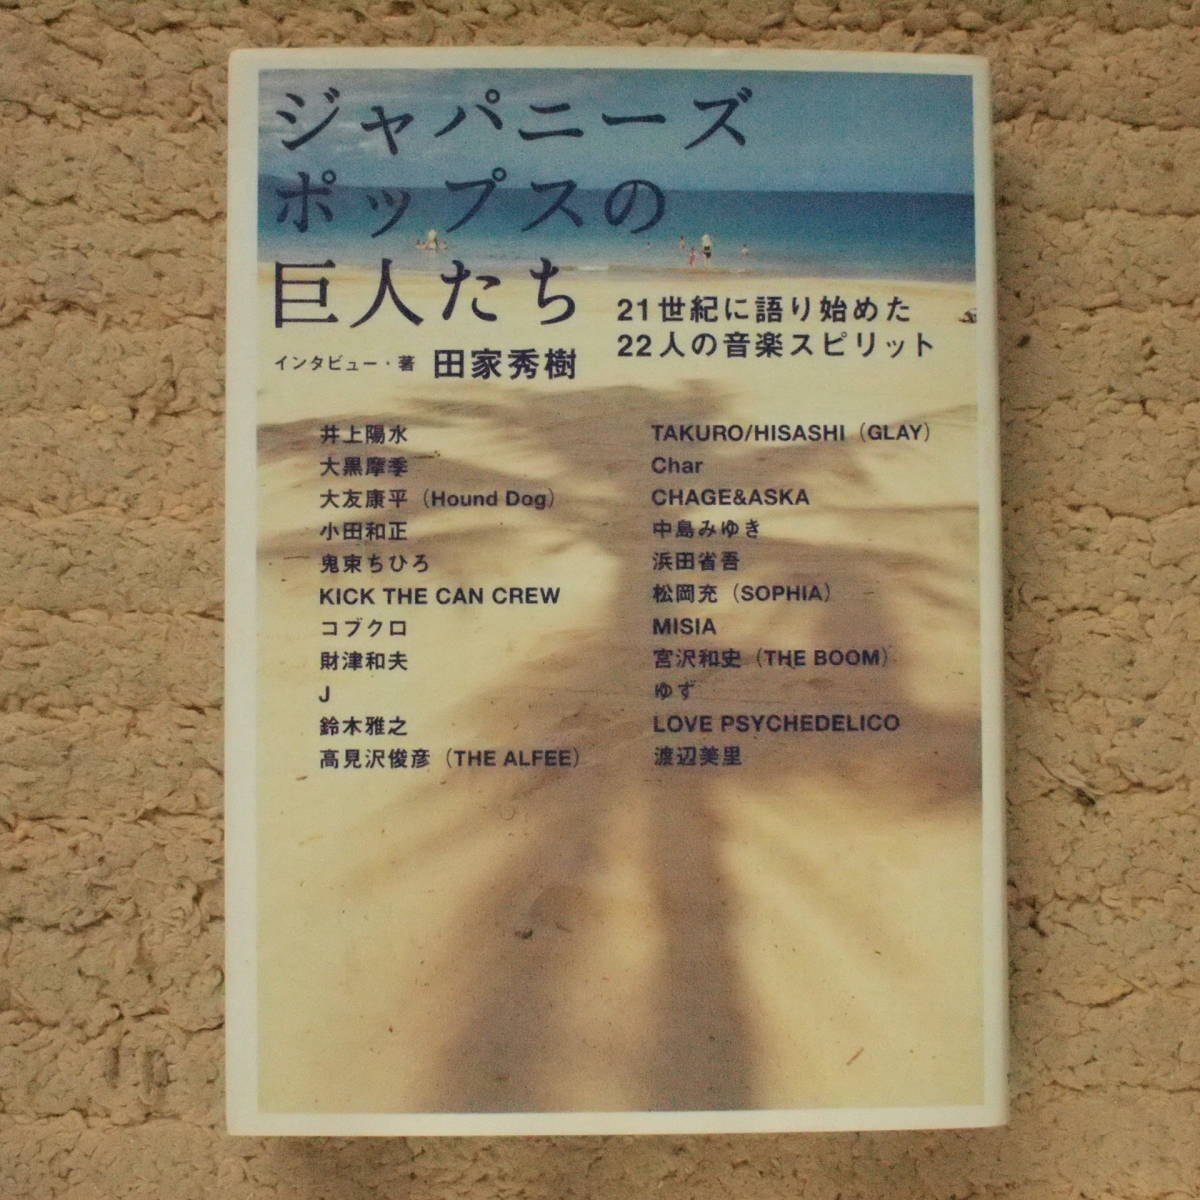 ジャパニーズ
ポップスの
巨人たち
21世紀に語り始めた
22人の音楽スピリット
インタビュー・著 田家秀樹
井上陽水
大黒摩季
大友康平（Hound Dog）
小田和正
鬼束ちひろ
KICK THE CAN CREW
コブクロ
財津和夫
J
鈴木雅之
高見沢俊彦（THE ALFEE）
TAKURO/HISASHI（GLAY）
Char
CHAGE&ASKA
中島みゆき
浜田省吾
松岡充（SOPHIA）
MISIA
宮沢和史（THE BOOM）
ゆず
LOVE PSYCHEDELICO
渡辺美里